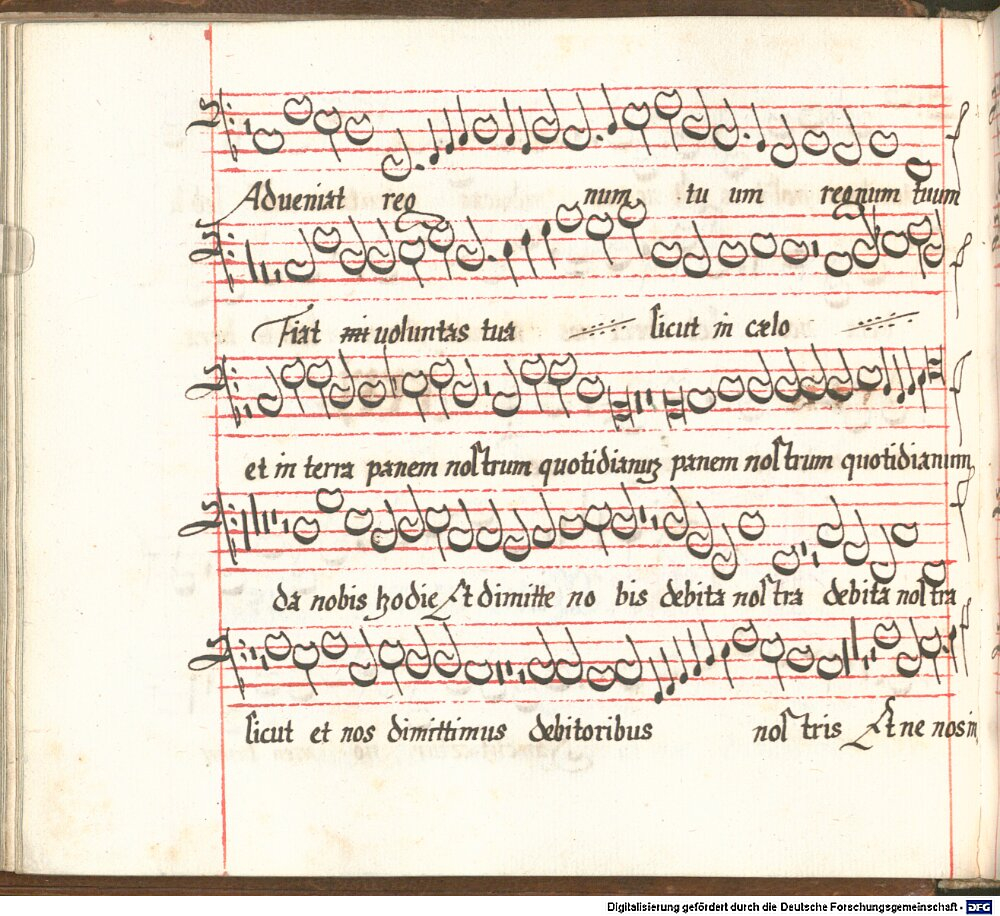 Adueniat reg num tu um regnum tuum
Fiat mi uoluntas tua sicut in cælo
et in terra panem nostrum quotidianuz panem nostrum quotidianum
da nobis hodie Et dimitte no bis debita nostra debita nostra
sicut et nos dimittimus debitoribus nos tris Et ne nos in
Digitalisierung gefördert durch die Deutsche Forschungsgemeinschaft - DFG